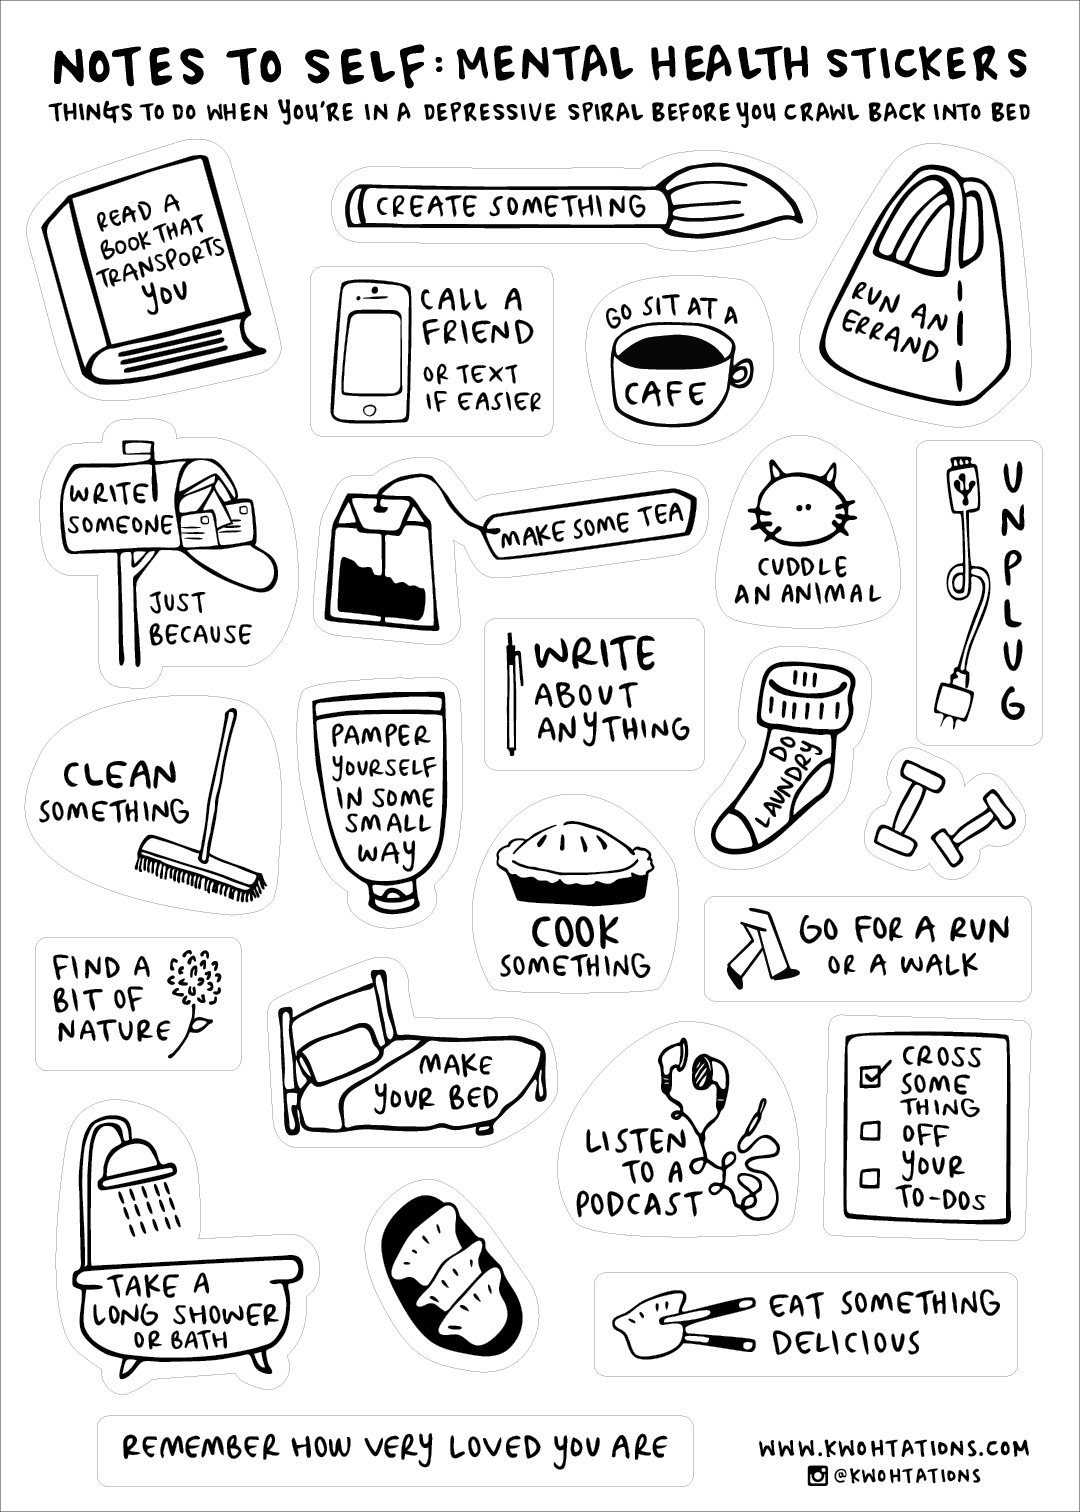 NOTES TO SELF: MENTAL HEALTH STICKERS
THINGS TO DO WHEN YOU'RE IN A DEPRESSIVE SPIRAL BEFORE YOU CRAWL BACK INTO BED
READ A
BOOK THAT
TRANSPORTS
YOU
CREATE SOMETHING
CALL A
FRIEND
OR TEXT
IF EASIER
GO SIT AT A
CAFE
RUN AN
ERRAND
WRITE
SOMEONE
JUST
BECAUSE
MAKE SOME TEA
CUDDLE
AN ANIMAL
U
N
P
L
U
G
WRITE
ABOUT
ANYTHING
CLEAN
SOMETHING
PAMPER
YOURSELF
IN SOME
SMALL
WAY
DO
LAUNDRY
COOK
SOMETHING
GO FOR A RUN
OR A WALK
FIND A
BIT OF
NATURE
MAKE
YOUR BED
LISTEN
TO A
PODCAST
CROSS
SOME
THING
OFF
YOUR
TO-DOS
TAKE A
LONG SHOWER
OR BATH
EAT SOMETHING
DELICIOUS
REMEMBER HOW VERY LOVED YOU ARE
WWW.KWOHTATIONS.COM
@KWOHTATIONS